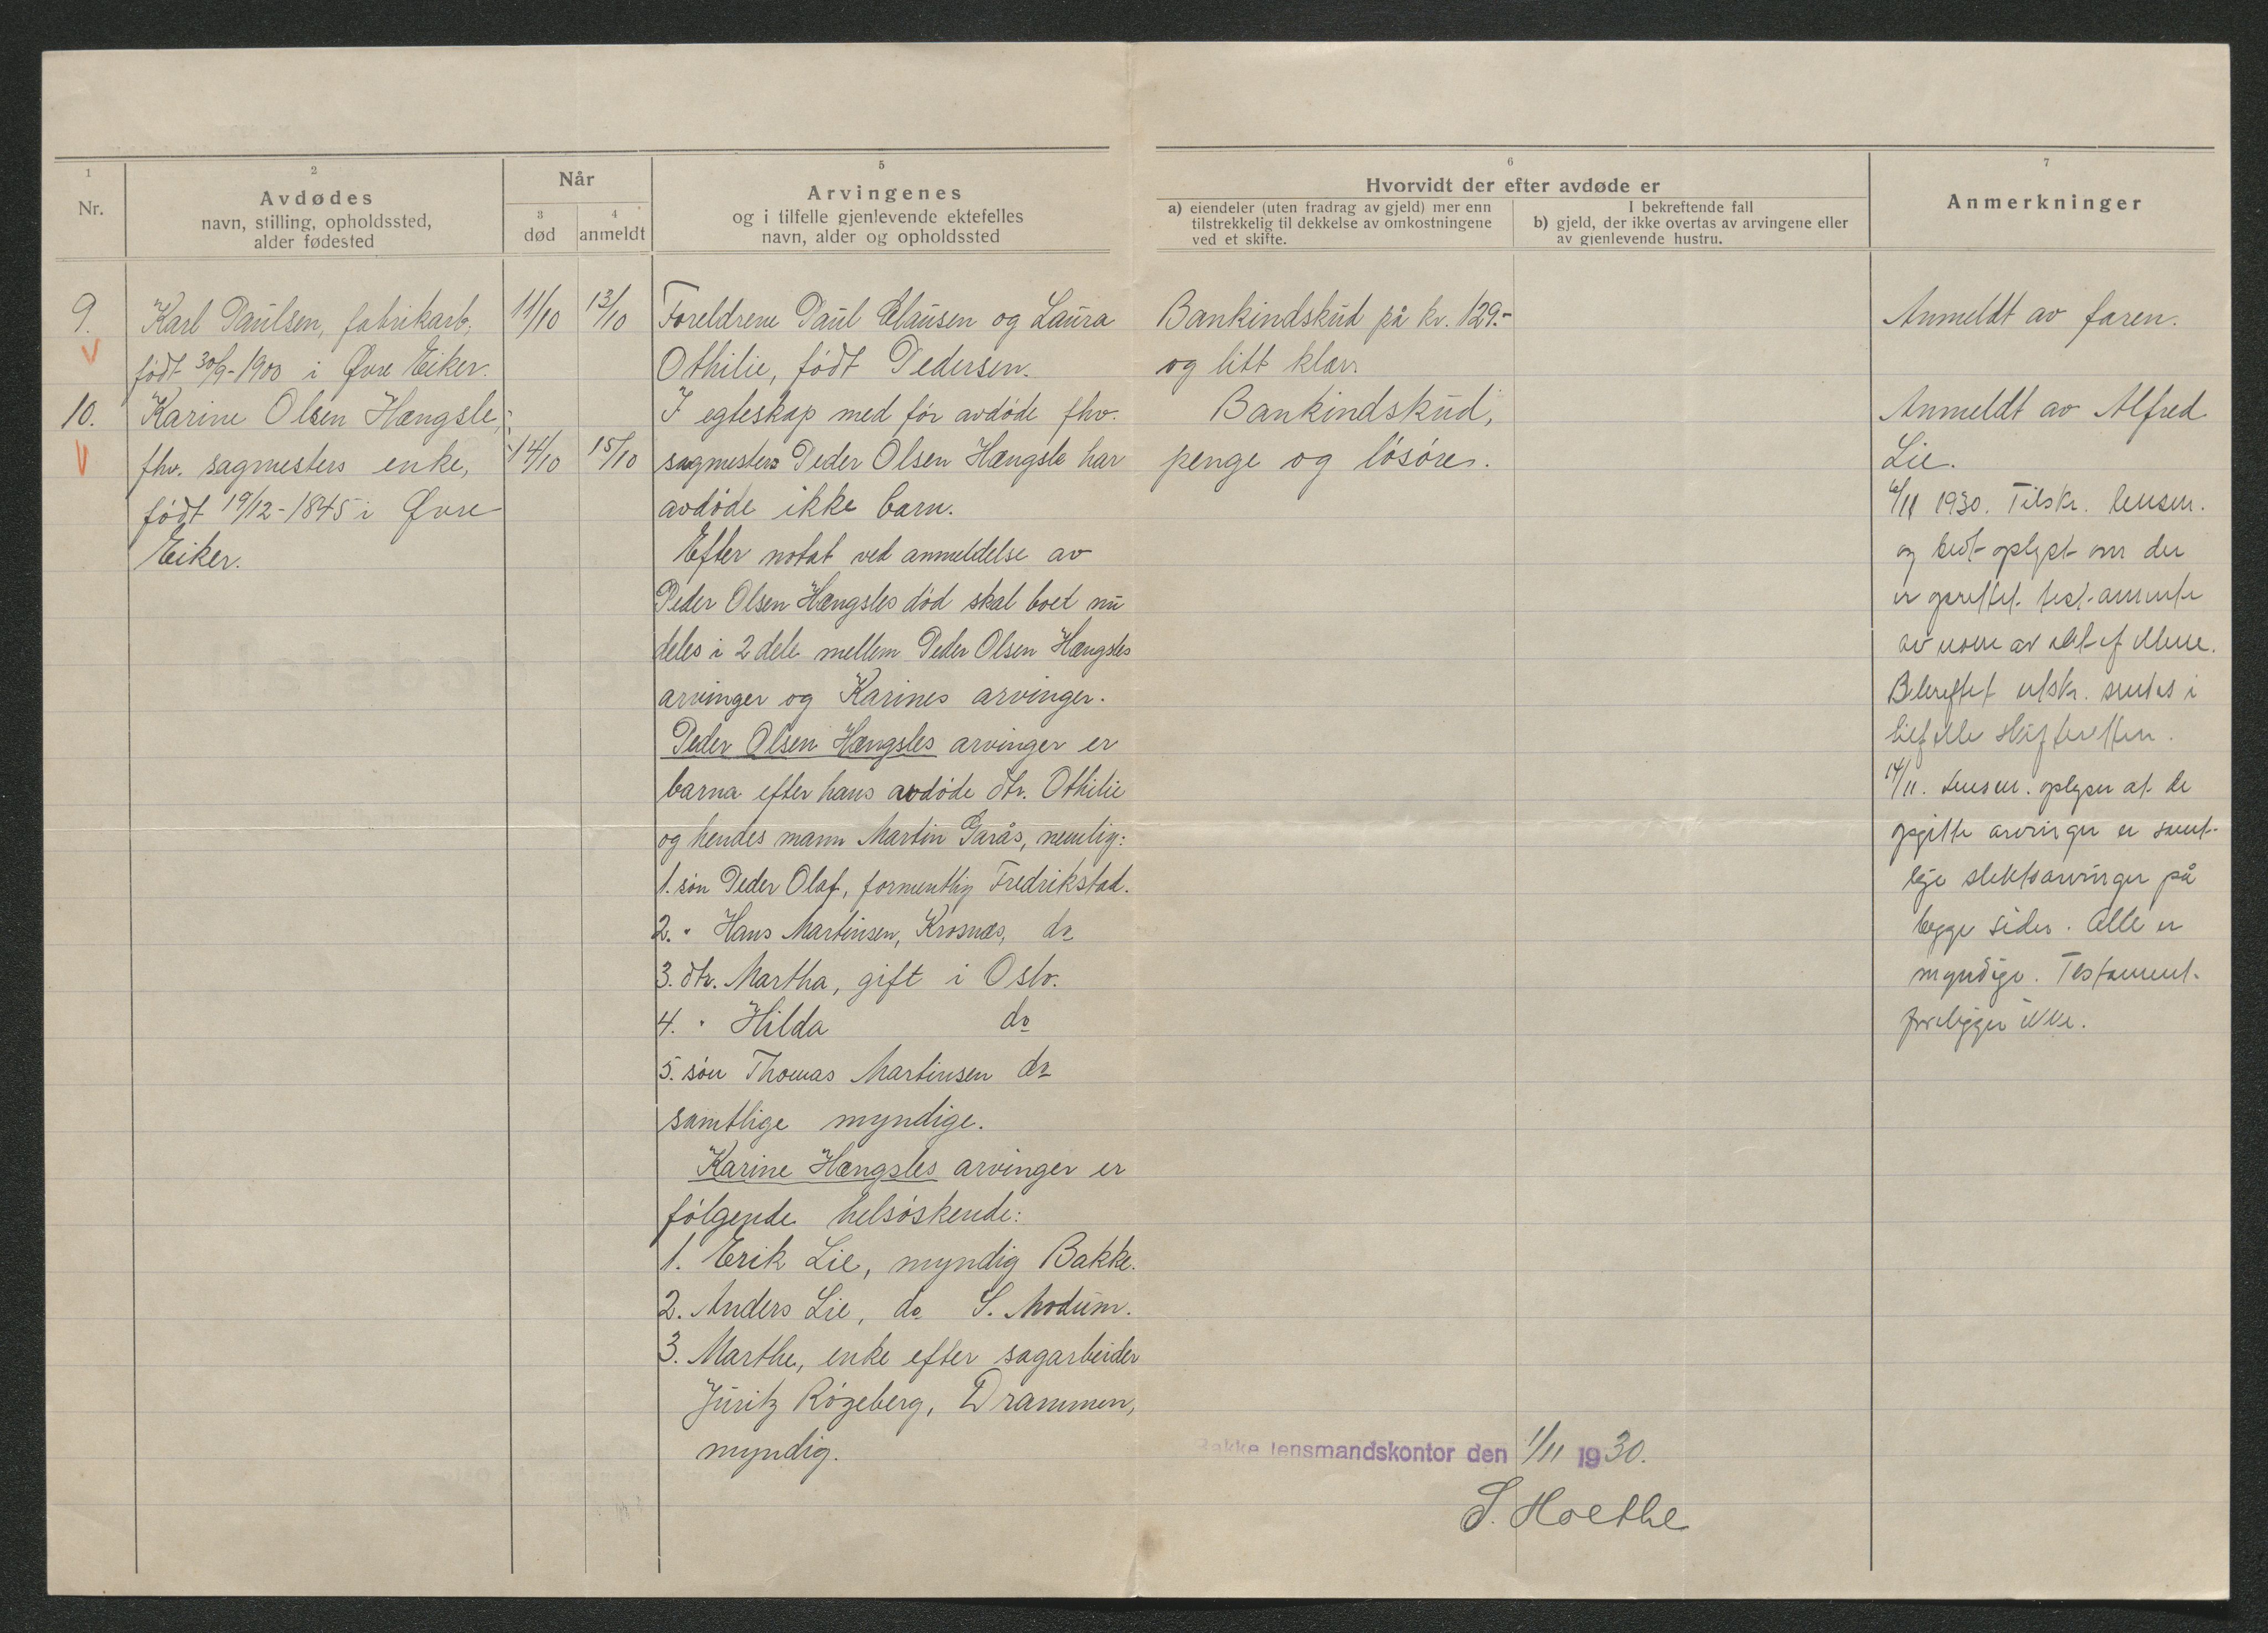 1
Nr.
2
Avdødes
navn, stilling, opholdssted,
alder fødested
Når
3
død
4
anmeldt
5
Arvingenes
og i tilfelle gjenlevende ektefelles
navn, alder og opholdssted
6
Hvorvidt der efter avdøde er
a) eiendeler (uten fradrag av gjeld) mer enn
tilstrekkelig til dekkelse av omkostningene
ved et skifte.
I bekreftende fall
b) gjeld, der ikke overtas av arvingene eller
av gjenlevende hustru.
7
Anmerkninger
9.
Karl Paulsen, fabrikarb.
født 30/9-1900 i Øvre Eiker.
11/10
13/10
Foreldrene Paul Clausen og Laura
Othilie, født Pedersen.
Bankindskud på kr. 129.-
og litt klær.
Anmeldt av faren.
10.
Karine Olsen Hængsle,
fhv. sagmesters enke,
født 19/12-1845 i Øvre
Eiker.
14/10
15/10
I egteskap med før avdøde fhv.
sagmester Peder Olsen Hængsle har
avdøde ikke barn.
Efter notat ved anmeldelse av
Peder Olsen Hængsles død skal boet nu
deles i 2 dele mellem Peder Olsen Hængsles
arvinger og Karines arvinger.
Peder Olsen Hængsles arvinger er
barna efter hans avdøde dtr. Othilie
og hendes mann Martin Garås, nemlig:
1. søn Peder Olaf, formentlig Fredrikstad.
2. " Hans Martinsen, Krosnæs, do
3. dtr. Martha, gift i Oslo.
4. " Hilda do
5. søn Thomas Martinsen do
samtlige myndige.
Karine Hængsles arvinger er
følgende helsøskende:
1. Erik Lie, myndig Bakke.
2. Anders Lie, do S. Modum.
3. Marthe, enke efter sagarbeider
Juritz Røgeberg, Drammen,
myndig.
Bankindskud,
penge og løsøre.
Anmeldt av Alfred
Lie.
6/11 1930. Tilskr. lensm.
og bedt oplyst om der
er oprettet testamente
av noen av ektefellene.
Bekreftet utskr. sendes i
tilfelle skifteretten.
14/11. Lensm. oplyser at de
opgitte arvinger er samt-
lige slektsarvinger på
begge sider. Alle er
myndige. Testament
foreligger ikke.
Bakke lensmandskontor den 1/11 1930.
S. Hoelhe